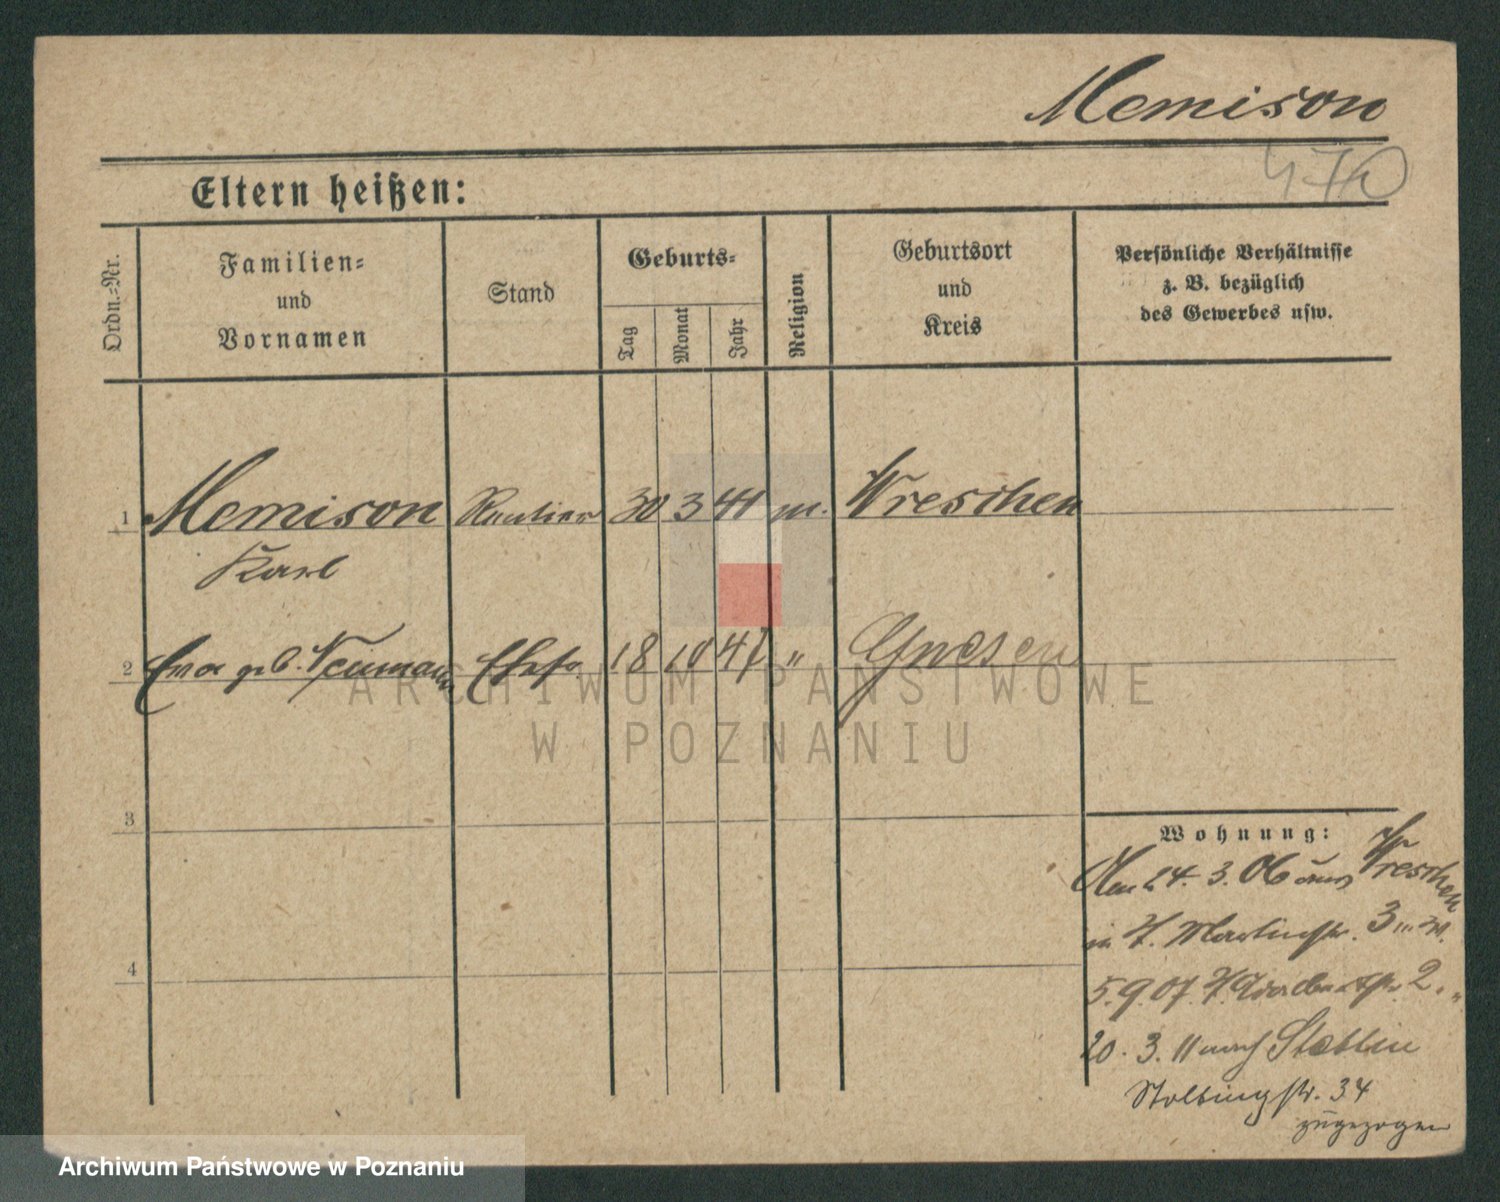 Memison
470
Eltern heißen:
Ordn.-Nr.
Familien-
und
Vornamen
Stand
Geburts-
Tag
Monat
Jahr
Religion
Geburtsort
und
Kreis
Persönliche Verhältnisse
z. B. bezüglich
des Gewerbes usw.
1 Memison Rentier 30 3 41 m. Wreschen
Karl
2 Eva geb. Neumann Ehefr. 18 10 47 " Gnesen
3
4
Wohnung:
24. 3. 06 aus Wreschen
in Martinstr. 3
5. 9. 07 2. "
20. 3. 11 nach Stettin
34
zugezogen
ARCHIWUM PAŃSTWOWE
W POZNANIU
Archiwum Państwowe w Poznaniu